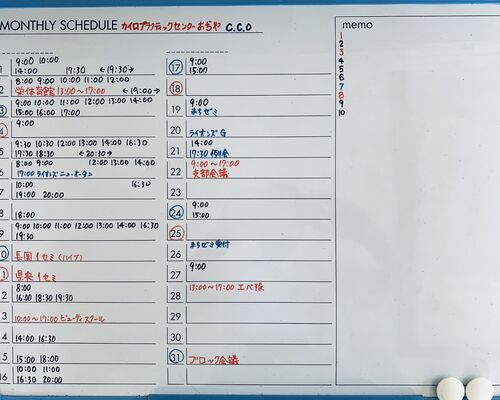 MONTHLY SCHEDULE カイロプラクティックセンターおぢや C.C.O
1 9:00 10:00
14:00 17:30 ←19:30→
2 8:00 9:00 10:00 11:00 12:00
栄体育館 13:00～17:00 ←19:00→
3 9:00 10:00 11:00 12:00 13:00 14:00
15:00 16:00 17:00
4 9:00
5 9:30 10:30 12:00 13:00 14:00 16:30
17:30 18:30 ←20:30→
6 8:00 9:00 12:00 13:00 14:00
17:00 ライオンズ ニューオータニ
7 10:00 16:30
19:00 20:00
8 18:00
9 9:00 10:00 11:00 12:00 13:00 14:00 16:30
19:30
0 長岡イセミ(ハイブ)
1 県央イセミ
2 8:00
16:00 18:30 19:30
3 10:00～17:00 ビューティスクール
4 14:00 16:30
5 15:00 18:00
16 10:00 11:00
16:30 20:00
17 9:00
15:00
18
19 9:00
まちゼミ
20 ライオンズG
21 14:00
17:30 例会
22 9:00～17:00
支部会議
23
24 9:00
15:00
25
26 まちゼミ受付
27 9:00
28 13:00～17:00 エバ隊
29
30
31 ブロック会議
memo
1
2
3
4
5
6
7
8
9
10